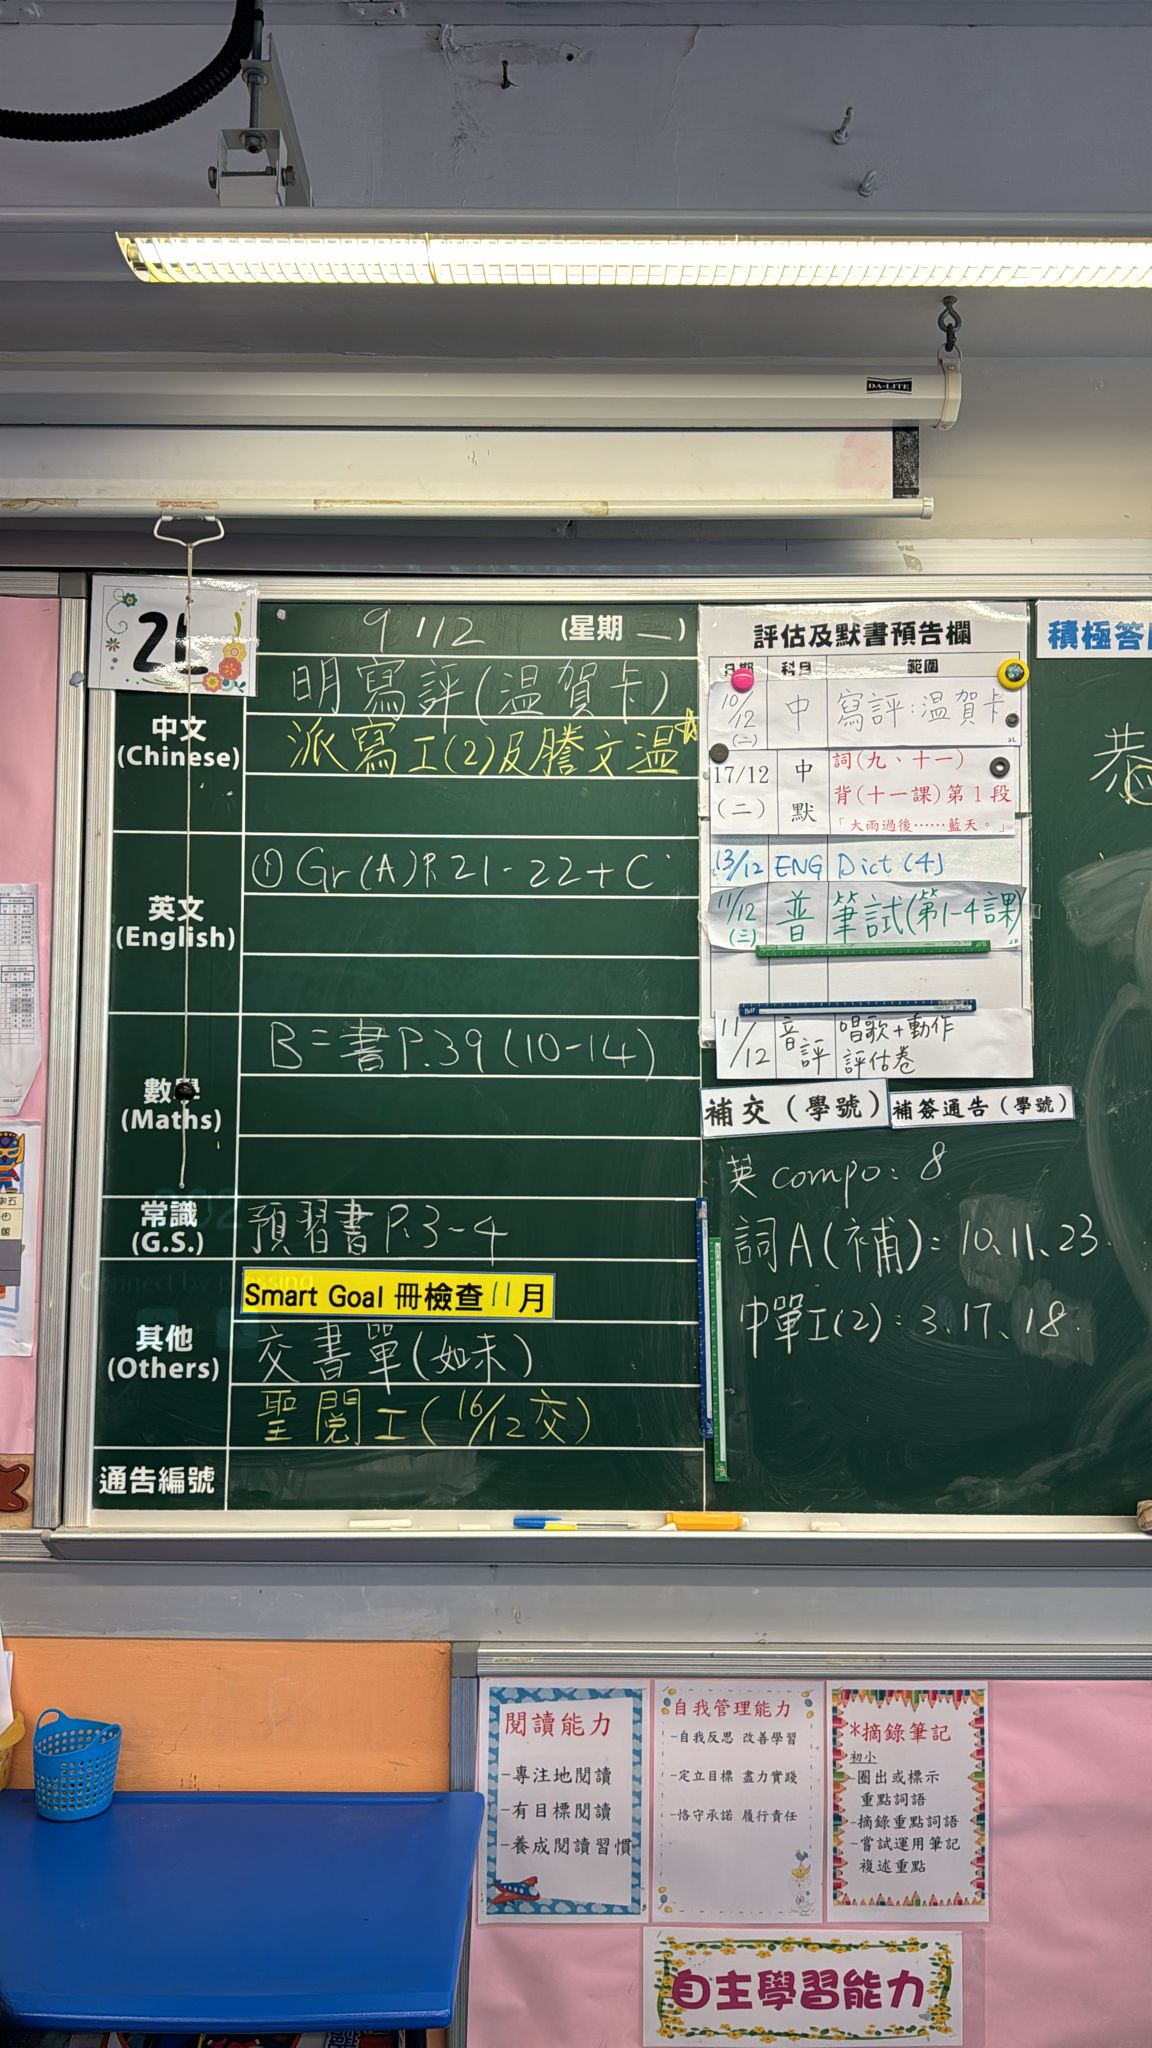 DA-LITE
2L
9/12 (星期一)
中文
(Chinese)
明寫評(温賀卡)
派寫工(2)及謄文温
英文
(English)
①Gr(A)P.21-22+C
數學
(Maths)
B=書P.39(10-14)
常識
(G.S.)
預習書P.3-4
其他
(Others)
Smart Goal 冊檢查11月
交書單(如未)
聖閱工(16/12交)
通告編號
評估及默書預告欄
日期 科目 範圍
10/12 (二) 中 寫評:温賀卡
17/12 (二) 中默 詞(九、十一)
背(十一課)第1段
「大雨過後……藍天。」
13/12 ENG Dict (4)
11/12 (三) 普 筆試(第1-4課)
11/12 音評 唱歌+動作
評估卷
補交(學號)
補簽通告(學號)
英 compo: 8
詞A(補): 10、11、23
中單工(2): 3、17、18
積極答
恭
閱讀能力
-專注地閱讀
-有目標閱讀
-養成閱讀習慣
自我管理能力
-自我反思 改善學習
-定立目標 盡力實踐
-恪守承諾 履行責任
*摘錄筆記
初小
-圈出或標示
重點詞語
-摘錄重點詞語
-嘗試運用筆記
複述重點
自主學習能力